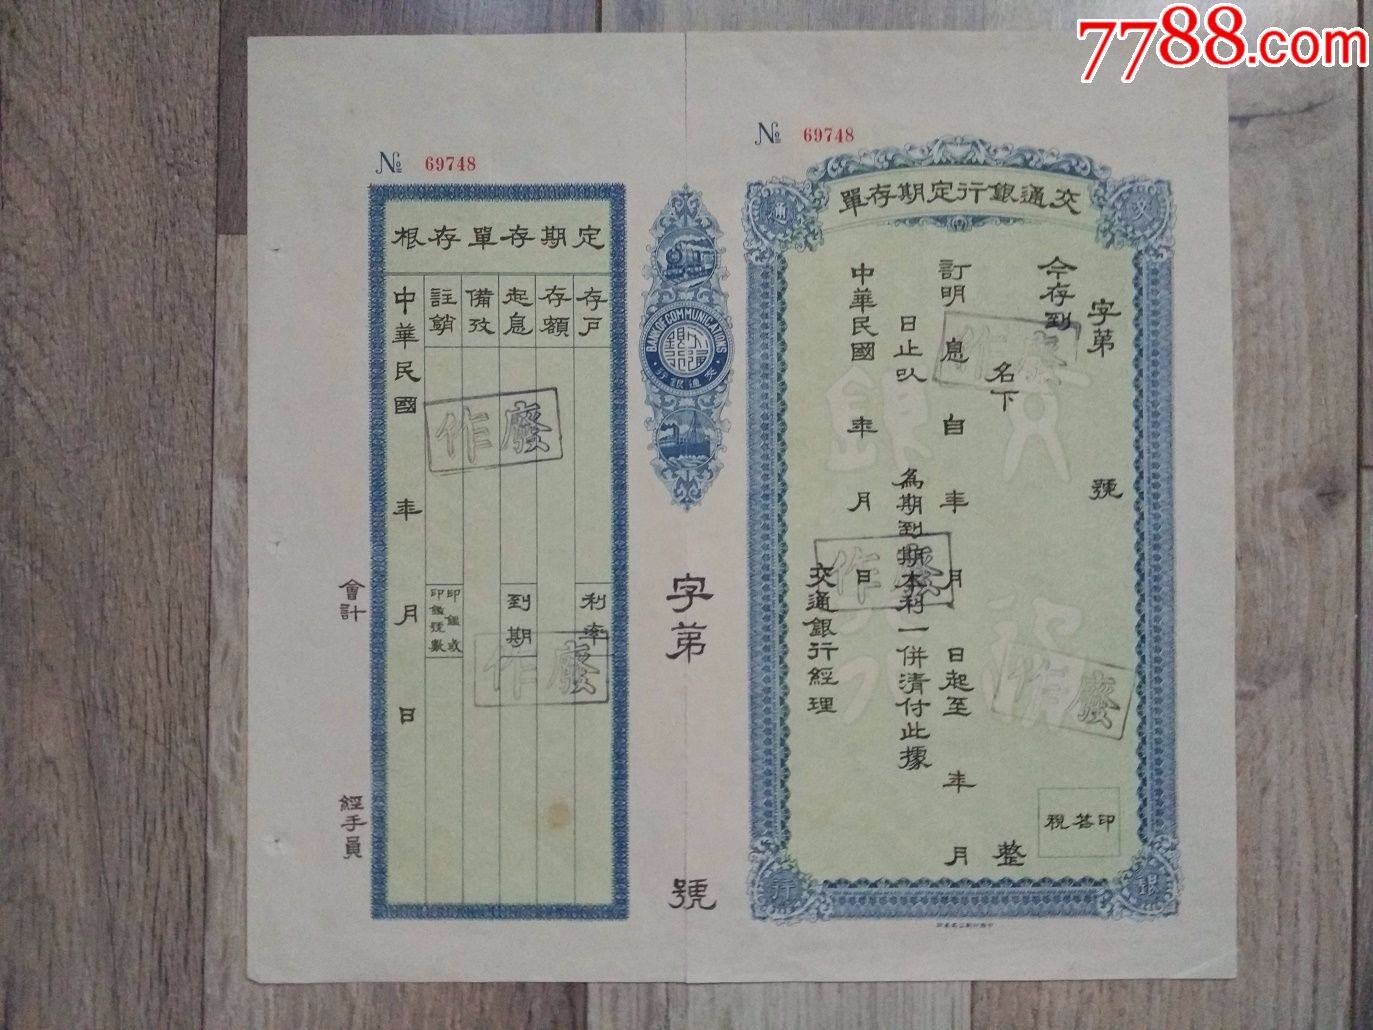 7788.com
№ 69748
№ 69748
交通銀行定期存單
交
通
字第 號
今存到
名下 整
訂明 息自 年 月 日起至 年 月
日止以 為期到期本利一併清付此據
中華民國 年 月 日
交通銀行經理
印花稅
銀
行
BANK OF COMMUNICATIONS
交通銀行
字第 號
定期存單存根
存戶 利率
存額
起息 到期
備攷
註銷 印鑑號數
中華民國 年 月 日
會計
經手員
作廢
作廢
作廢
作廢
作廢